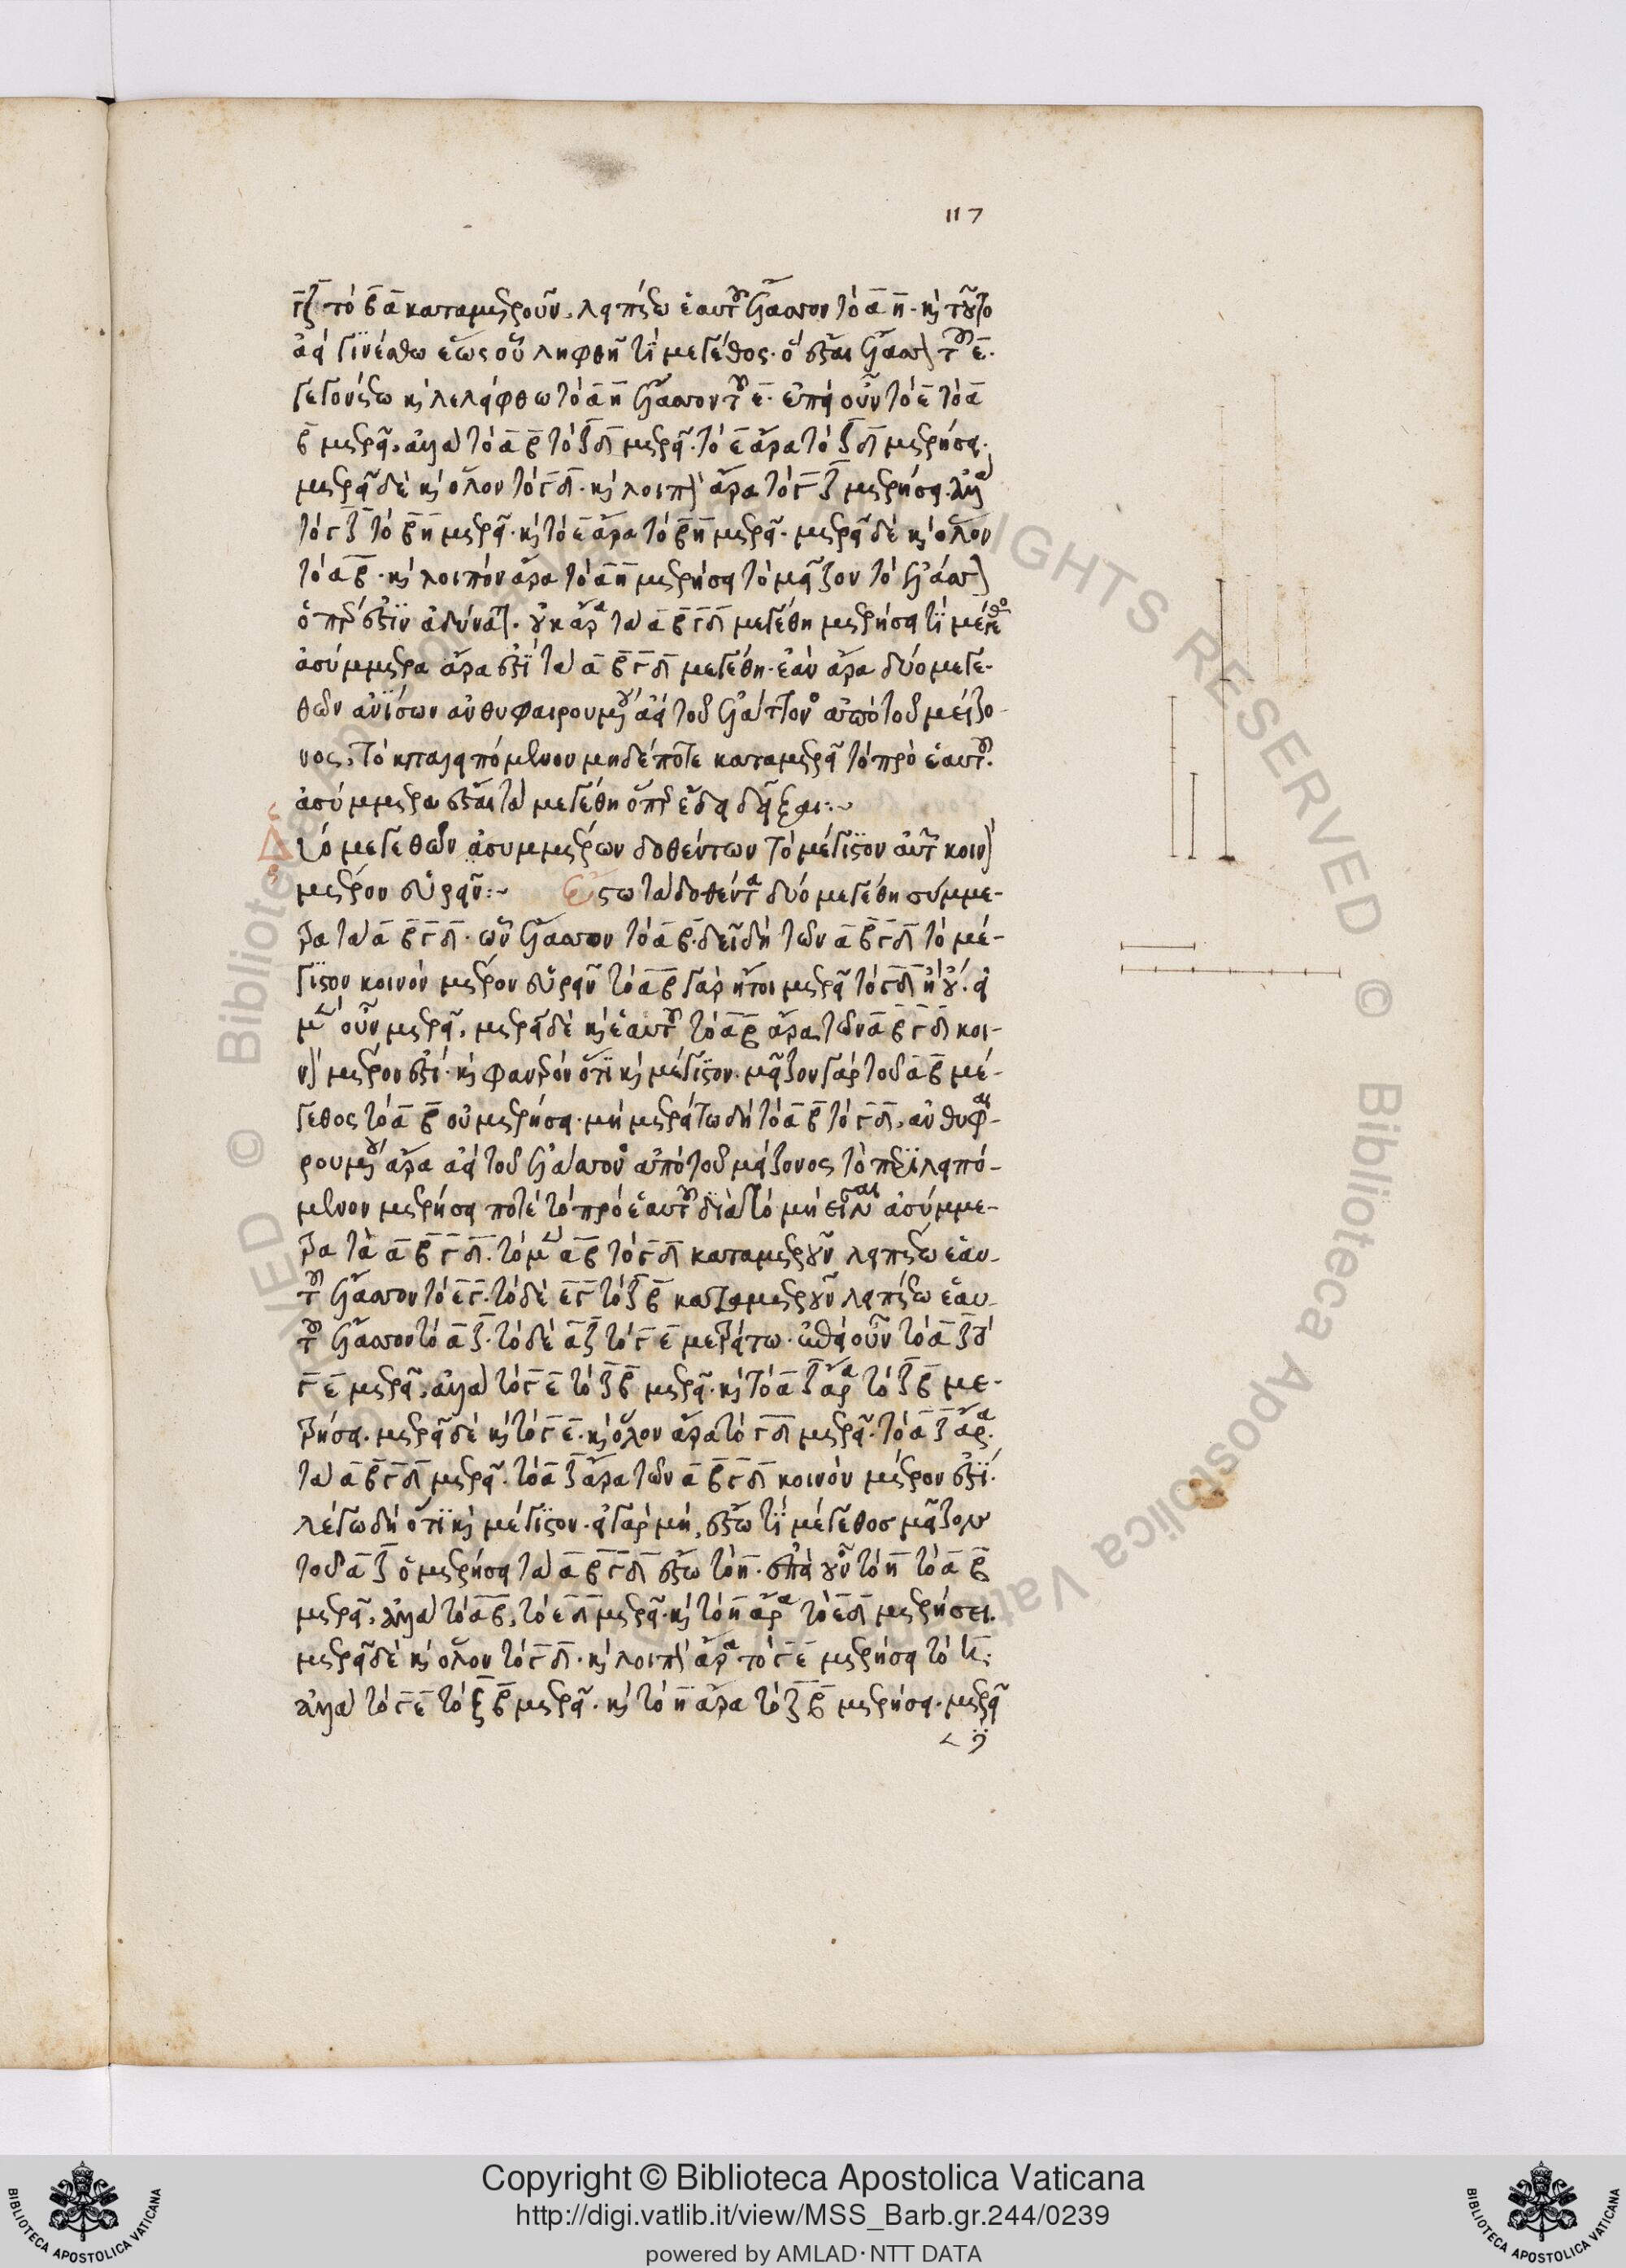 117
γζ τὸ βα καταμετροῦν, λειπέτω ἑαυτοῦ ἔλασσον τὸ αη. καὶ τοῦτο
ἀεὶ γινέσθω ἕως οὗ ληφθῇ τι μέγεθος. ὅ ἐσται ἔλασσον τοῦ ε.
γεγονέτω καὶ λελείφθω τὸ αη ἔλασσον τοῦ ε. ἐπεὶ οὖν τὸ ε τὸ α
β μετρεῖ, ἀλλὰ τὸ αβ τὸ ζδ μετρεῖ. τὸ ε ἄρα τὸ ζδ μετρήσει.
μετρεῖ δὲ καὶ ὅλον τὸ γδ. καὶ λοιπὸν ἄρα τὸ γζ μετρήσει. ἀλλὰ
τὸ γζ τὸ βη μετρεῖ. καὶ τὸ ε ἄρα τὸ βη μετρεῖ. μετρεῖ δὲ καὶ ὅλον
τὸ αβ. καὶ λοιπὸν ἄρα τὸ αη μετρήσει τὸ μεῖζον τὸ ἔλασσον
ὅπερ ἐστὶν ἀδύνατον. οὐκ ἄρα τὰ αβ γδ μεγέθη μετρήσει τι μέγεθος
ἀσύμμετρα ἄρα ἐστὶ τὰ αβ γδ μεγέθη. ἐὰν ἄρα δύο μεγε-
θῶν ἀνίσων ἀνθυφαιρουμένου ἀεὶ τοῦ ἐλάττονος ἀπὸ τοῦ μείζο-
νος, τὸ καταλειπόμενον μηδέποτε καταμετρεῖ τὸ πρὸ ἑαυτοῦ.
ἀσύμμετρα ἔσται τὰ μεγέθη ὅπερ ἔδει δεῖξαι:~
Δύο μεγεθῶν ἀσυμμέτρων δοθέντων τὸ μέγιστον αὐτῶν κοινὸν
μέτρον εὑρεῖν:~ Ἔστω τὰ δοθέντα δύο μεγέθη σύμμε-
τρα τὰ αβ γδ. ὧν ἔλασσον τὸ αβ. δεῖ δὴ τῶν αβ γδ τὸ μέ-
γιστον κοινὸν μέτρον εὑρεῖν τὸ αβ γὰρ ἤτοι μετρεῖ τὸ γδ ἢ οὔ. εἰ
μὲν οὖν μετρεῖ, μετρεῖ δὲ καὶ ἑαυτοῦ τὸ αβ ἄρα τῶν αβ γδ κοι-
νὸν μέτρον ἐστί. καὶ φανερὸν ὅτι καὶ μέγιστον. μεῖζον γὰρ τοῦ αβ μέ-
γεθος τὸ αβ οὐ μετρήσει. μὴ μετρείτω δὴ τὸ αβ τὸ γδ, ἀνθυφαι-
ρουμένου ἄρα ἀεὶ τοῦ ἐλάσσονος ἀπὸ τοῦ μείζονος τὸ περιλειπό-
μενον μετρήσει ποτὲ τὸ πρὸ ἑαυτοῦ διὰ τὸ μὴ εἶναι ἀσύμμε-
τρα τὰ αβ γδ. τὸ μὲν αβ τὸ γδ καταμετροῦν λειπέτω ἑαυ-
τοῦ ἔλασσον τὸ εγ. τὸ δὲ εγ τὸ ζβ καταμετροῦν λειπέτω ἑαυ-
τοῦ ἔλασσον τὸ αζ. τὸ δὲ αζ τὸ γε μετρείτω. ἐπεὶ οὖν τὸ αζ τὸ
γε μετρεῖ, ἀλλὰ τὸ γε τὸ ζβ μετρεῖ. καὶ τὸ αζ ἄρα τὸ ζβ με-
τρήσει. μετρεῖ δὲ καὶ τὸ γε. καὶ ὅλον ἄρα τὸ γδ μετρεῖ. τὸ αζ ἄρα
τὰ αβ γδ μετρεῖ. τὸ αζ ἄρα τῶν αβ γδ κοινὸν μέτρον ἐστί.
λέγω δὴ ὅτι καὶ μέγιστον. εἰ γὰρ μή, ἔστω τι μέγεθος μεῖζον
τοῦ αζ ὃ μετρήσει τὰ αβ γδ ἔστω τὸ η. ἐπεὶ οὖν τὸ η τὸ αβ
μετρεῖ, ἀλλὰ τὸ αβ, τὸ εδ μετρεῖ. καὶ τὸ η ἄρα τὸ εδ μετρήσει.
μετρεῖ δὲ καὶ ὅλον τὸ γδ. καὶ λοιπὸν ἄρα τὸ γε μετρήσει τὸ η.
ἀλλὰ τὸ γε τὸ ζβ μετρεῖ. καὶ τὸ η ἄρα τὸ ζβ μετρήσει. μετρεῖ